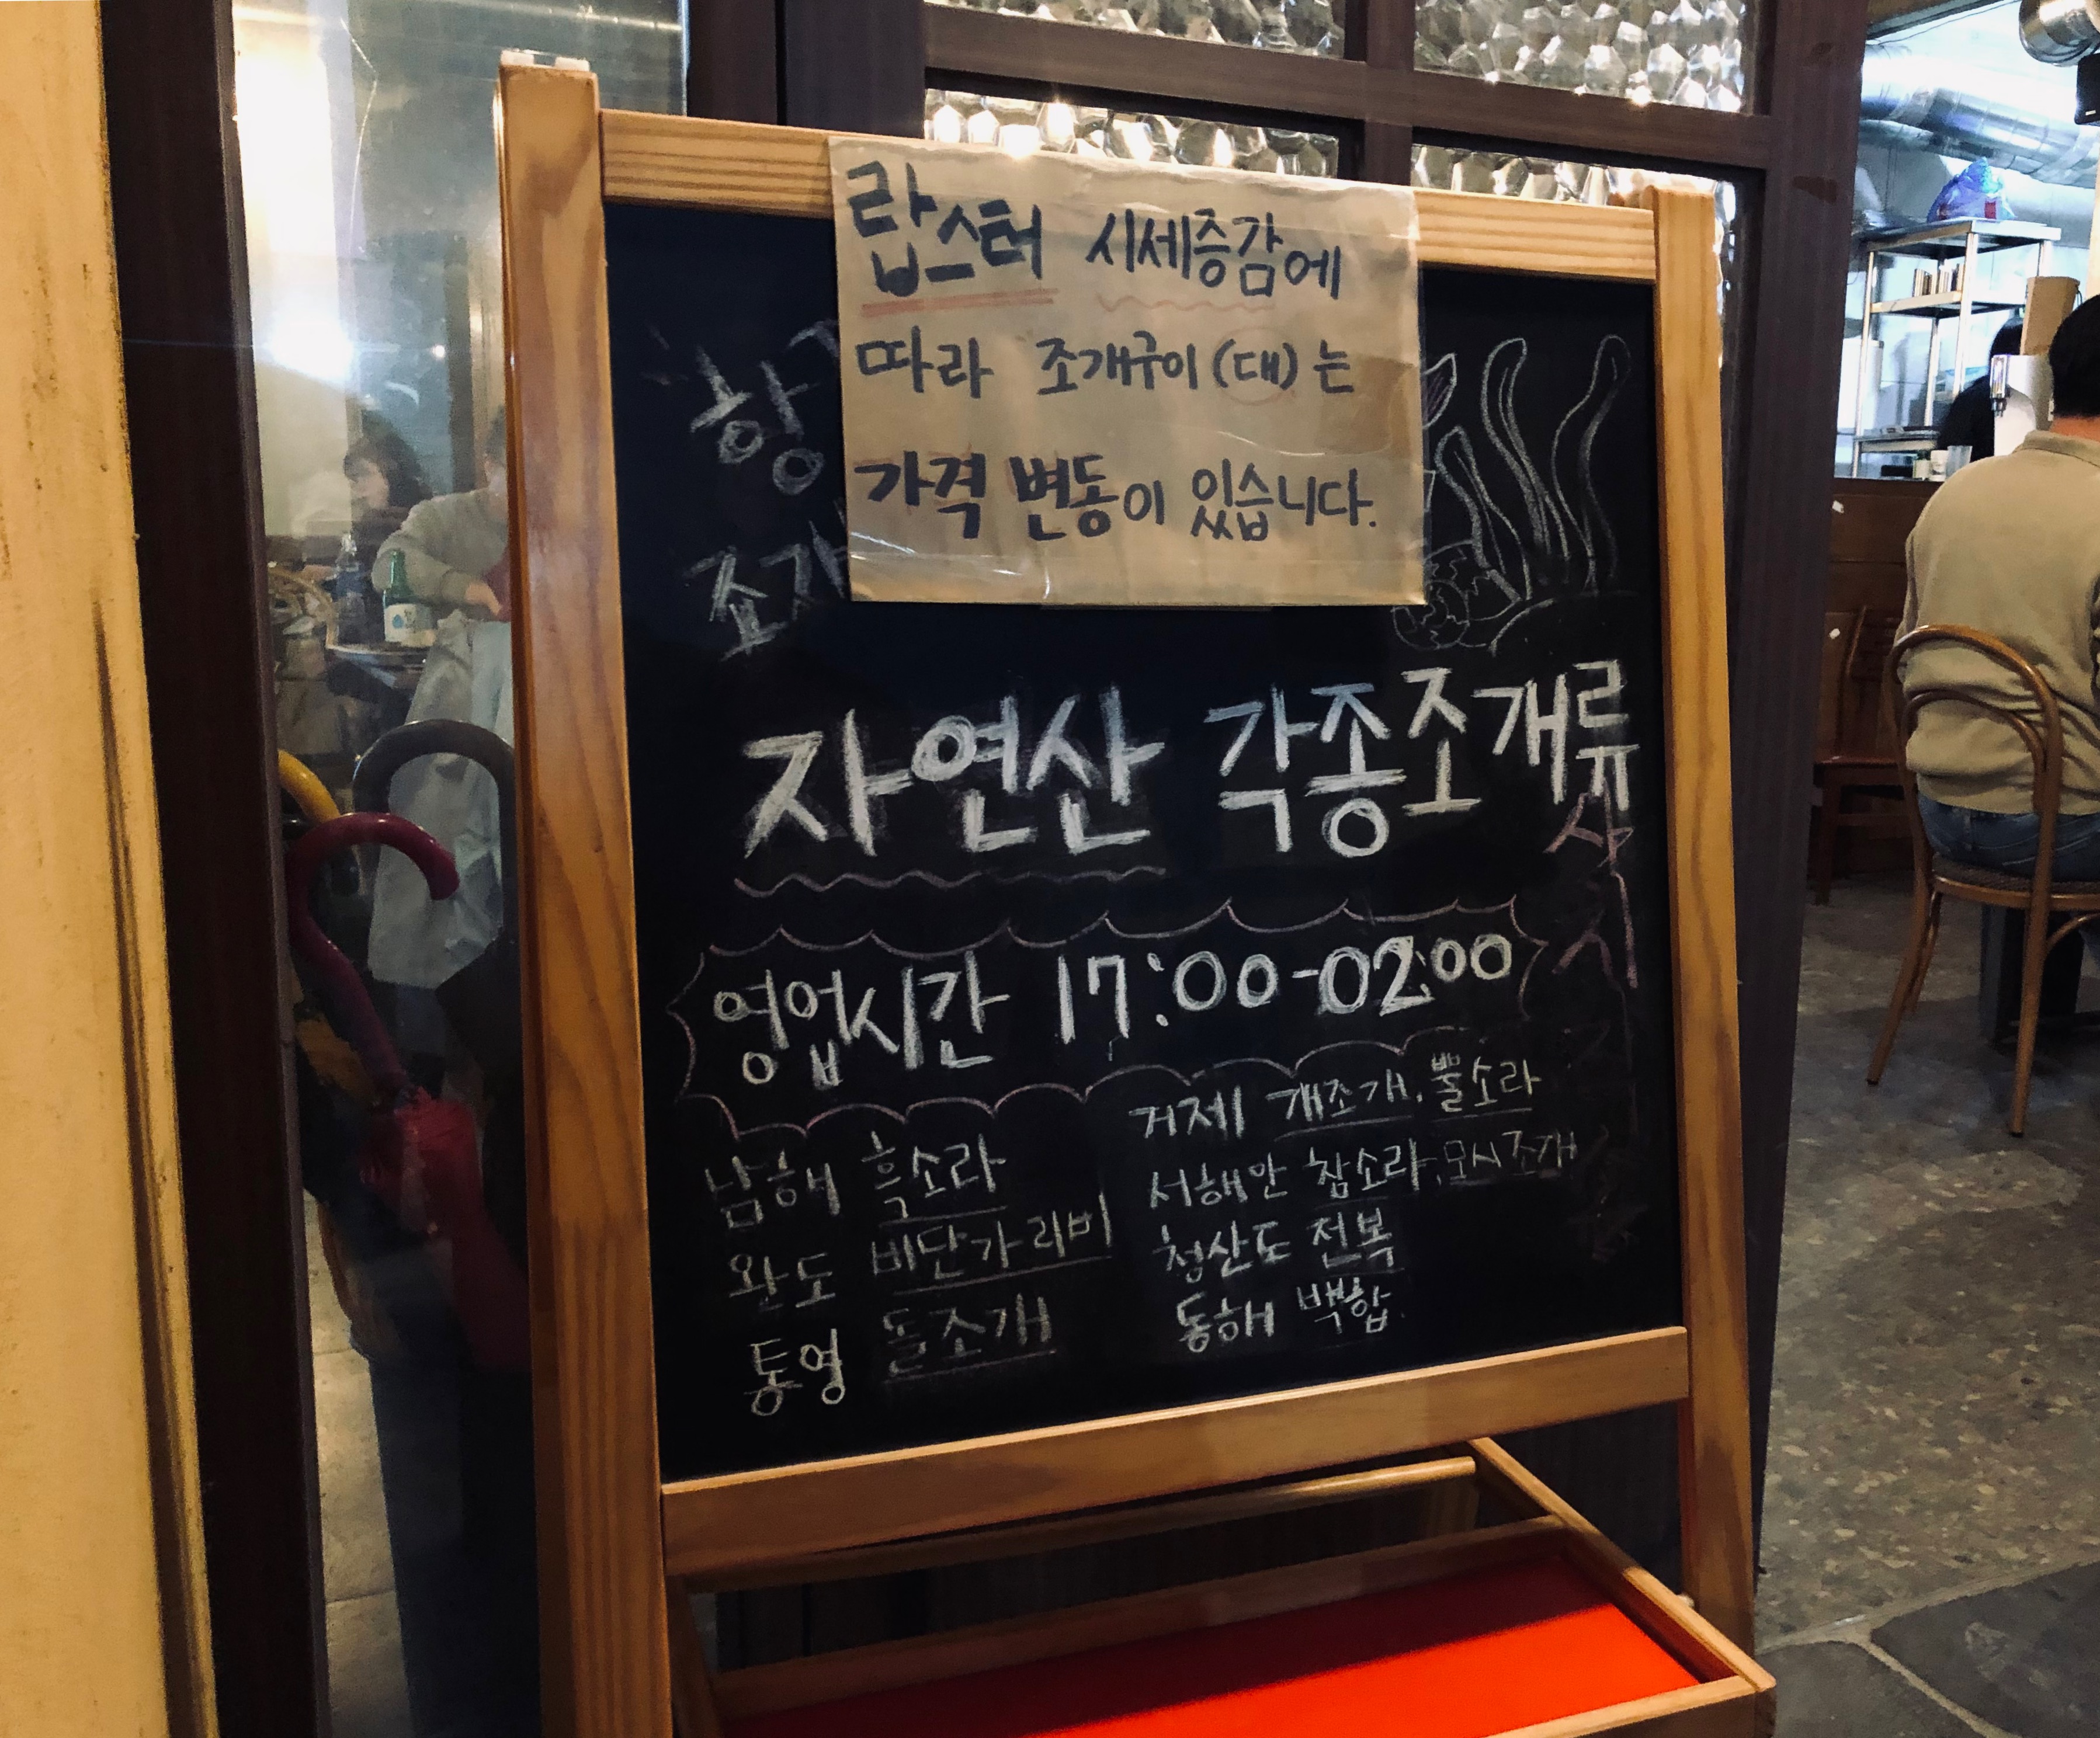 랍스터 시세증감에
따라 조개구이 (대) 는
가격 변동이 있습니다.
항
조개
자연산 각종조개류
영업시간 17:00-02:00
남해 흑소라
완도 비단가리비
통영 돌조개
거제 개조개, 뿔소라
서해안 참소라, 모시조개
청산도 전복
동해 백합.